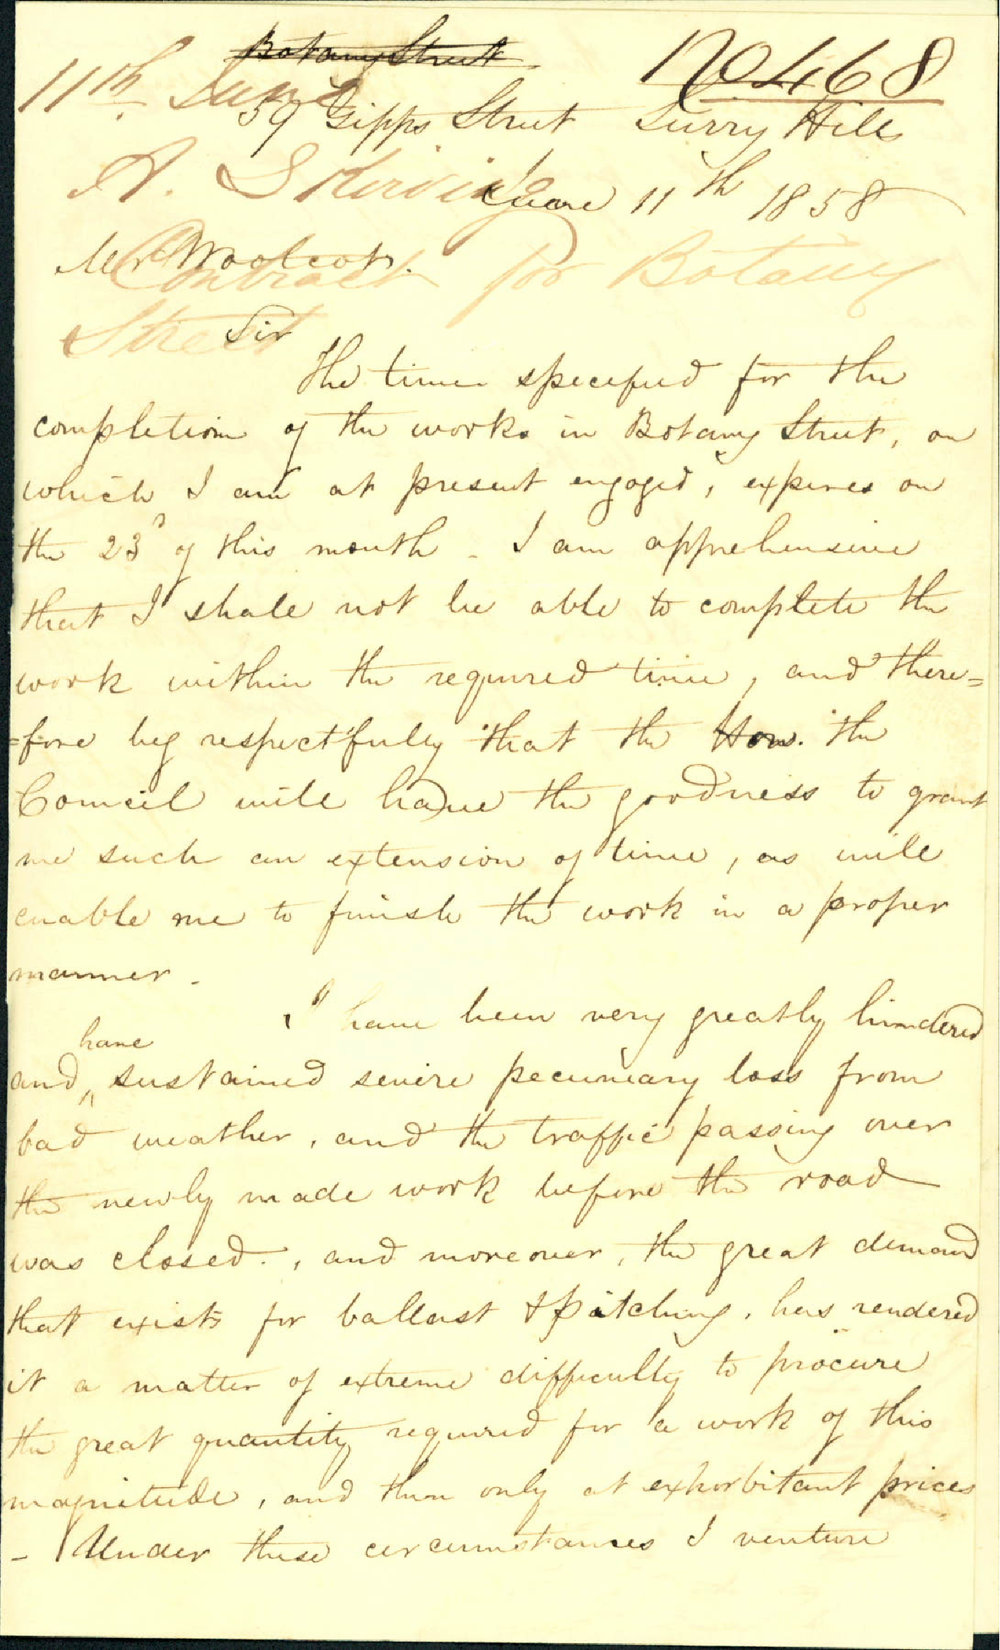 Botany Street
No 468
11th June
59 Gipps Street Surry Hills
A. Skirving
June 11th 1858
Mr Woolcott.
Contract for Botany
Street
Sir
The time specified for the
completion of the works in Botany Street, on
which I am at present engaged, expires on
the 23d of this month - I am apprehensive
that I shall not be able to complete the
work within the required time, and there=
=fore beg respectfully that the Hon. the
Council will have the goodness to grant
me such an extension of time, as will
enable me to finish the work in a proper
manner -
I have been very greatly hindered
have
and sustained severe pecuniary loss from
bad weather, and the traffic passing over
the newly made work before the road
was closed, and moreover, the great demand
that exists for ballast & pitching, has rendered
it a matter of extreme difficulty to procure
the great quantity required for a work of this
magnitude, and then only at exhorbitant prices
- Under these circumstances I venture